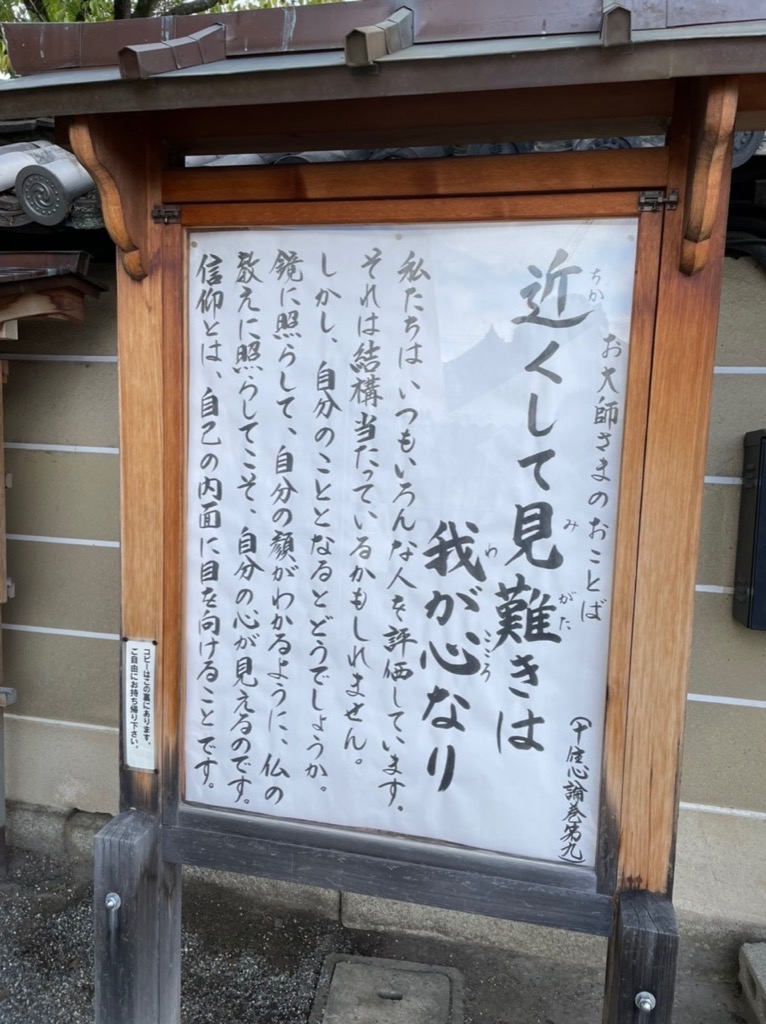 お大師さまのおことば
近くして見難きは
ちか
み
がた
我が心なり
わ
こころ
(十住心論巻第九)
私たちはいつもいろんな人を評価しています。
それは結構当たっているかもしれません。
しかし、自分のこととなるとどうでしょうか。
鏡に照らして、自分の顔がわかるように、仏の
教えに照らしてこそ、自分の心が見えるのです。
信仰とは、自己の内面に目を向けることです。
コピーはこの裏にあります。
ご自由にお持ち帰り下さい。